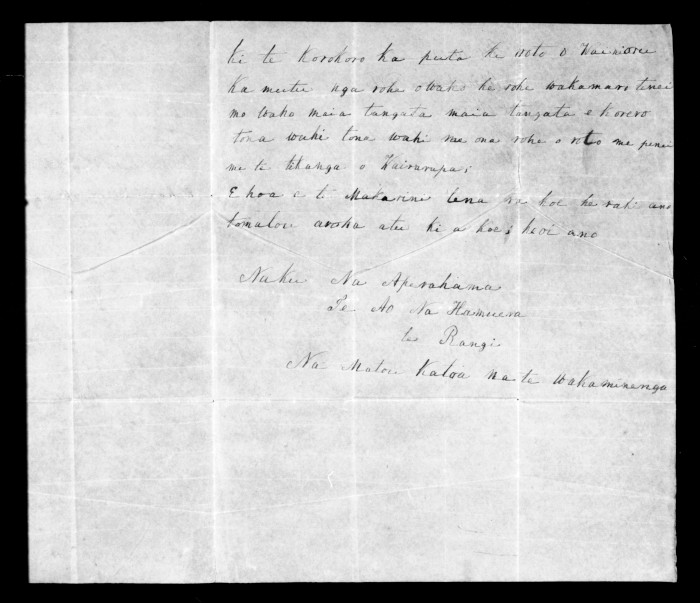 ki te Korokoro ka puta ki roto o Wainioru
Ka mutu nga rohe o waho he rohe wakamaro tenei
mo waho maia tangata maia tangata e korero
tona wahi tona wahi me ona rohe o roto me penei
me te tikanga o Wairarapa;
E hoa e te Makarine tena ra koe he nui ano
to matou aroha atu ki a koe; heoi ano
Naku Na Aperahama
Te Ao Na Hamuera
te Rangi
Na Matou Katoa na te wakaminenga